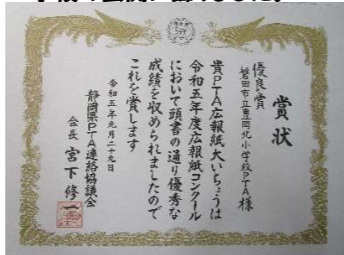 賞状
優良賞
磐田市立豊岡北小学校PTA様
貴PTA広報紙大いちょうは
令和五年度広報紙コンクール
において頭書の通り優秀な
成績を収められましたので
これを賞します
令和五年九月二十九日
静岡県PTA連絡協議会
会長 宮下修一